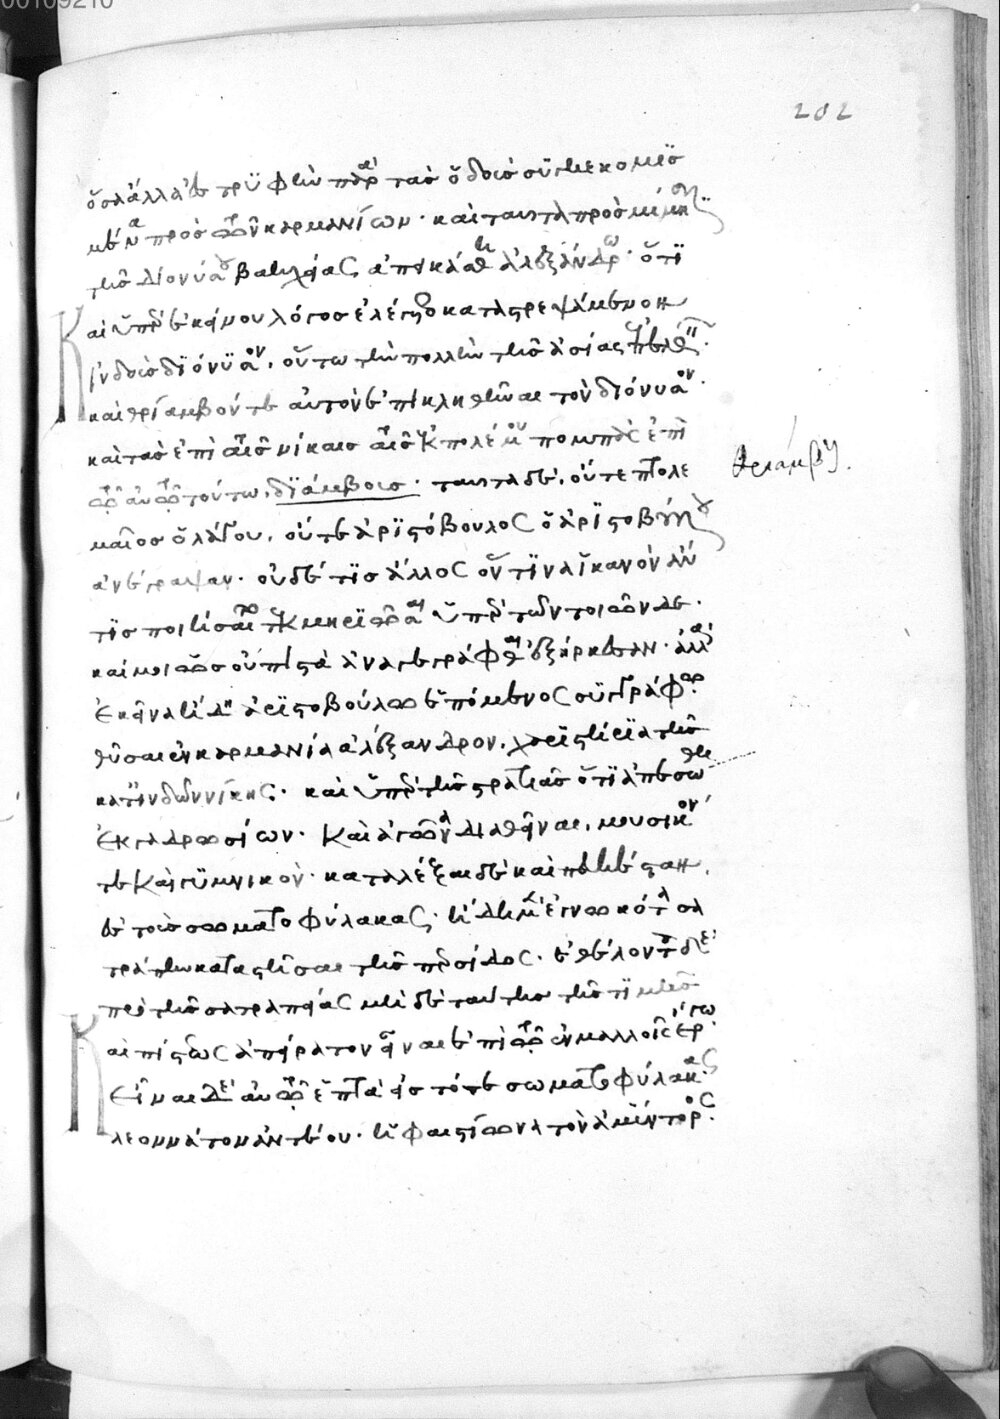 ὅσα ἄλλα ἐς τρυφὴν παρὰ τὰς ὁδοὺς συγκεκομισ
μένα πρὸς τῶν καρμανίων. καὶ ταῦτα πρὸς μίμησιν
τῆς Διονύσου βακχείας ἀπεικάσθη ἀλεξάνδρω. ὅτι
Καὶ ὑπὲρ ἐκείνου λόγος ἐλέγετο καταστρεψάμενον
ἰνδοὺς διόνυσον. οὕτω τὴν πολλὴν τῆς ἀσίας ἐπελθεῖν.
καὶ θρίαμβόν τε αὐτὸν ἐπικληθῆναι τὸν διόνυσον.
καὶ τὰς ἐπὶ ταῖς νίκαις ταῖς ἐκ πολέμου πομπὰς ἐπὶ
τῶ αὐτῶ τούτω. διάμβους. ταῦτα δὲ. οὔτε πτολε
θριάμβους.
μαῖος ὁ λάγου. οὔτε ἀριστόβουλος ὁ ἀριστοβούλου
ἀνέγραψαν. οὐδέ τις ἄλλος ὅντινα ἱκανὸν ἄν
τις ποιήσαιτο τεκμηριῶσαι ὑπὲρ τῶν τοιῶνδε.
καί μοι ὡς οὐ πιστὰ ἀναγεγράφθαι ἐξήρκεσαν. ἀλλὰ
ἐκεῖνα ἤδη ἀριστοβούλω ἑπόμενος συγγράφω.
θῦσαι ἐν καρμανία ἀλέξανδρον. χαριστήρια τῆς
κατ' ἰνδῶν νίκης. καὶ ὑπὲρ τῆς στρατιᾶς ὅτι ἀπεσώθη
ἐκ γαδρωσίων. καὶ ἀγῶνα διαθεῖναι. μουσικόν
τε καὶ γυμνικὸν. καταλέξαι δὲ καὶ πευκέσταν.
ἐς τοὺς σωματοφύλακας. ἤδη μὲν ἐγνωκότα σα
τράπην καταστῆσαι τῆς περσίδος. ἐθέλοντα δὲ
πρὸ τῆς σατραπείας μηδὲ ταύτης τῆς τιμῆς
Καὶ πίστεως ἀπείρατον εἶναι ἐπὶ τῶ ἐν μαλλοῖς ἔργω.
εἶναι δὲ αὐτῶ ἑπτὰ εἰς τότε σωματοφύλακας.
λεοννάτον ἀντέου. ἡφαιστίωνα τὸν ἀμύντορος.
202